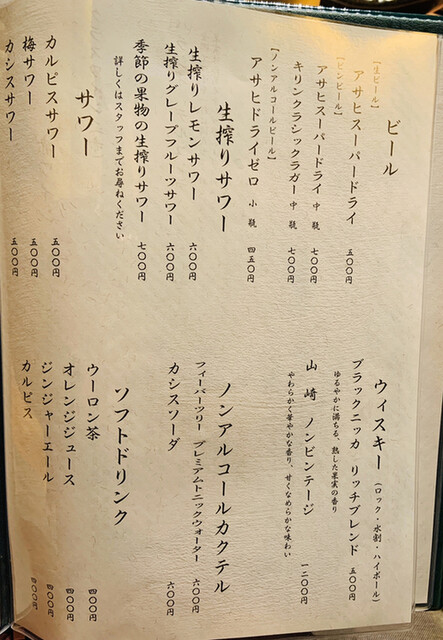 ビール
[生ビール]
アサヒスーパードライ 五〇〇円
[ビンビール]
アサヒスーパードライ 中瓶 七〇〇円
キリンクラシックラガー 中瓶 七〇〇円
[ノンアルコールビール]
アサヒドライゼロ 小瓶 四五〇円
生搾りサワー
生搾りレモンサワー 六〇〇円
生搾りグレープフルーツサワー 六〇〇円
季節の果物の生搾りサワー 七〇〇円
詳しくはスタッフまでお尋ねください
サワー
カルピスサワー 五〇〇円
梅サワー 五〇〇円
カシスサワー 五〇〇円
ウィスキー (ロック・水割・ハイボール)
ブラックニッカ リッチブレンド 五〇〇円
ゆるやかに満ちる、熟した果実の香り
山崎 ノンビンテージ 一二〇〇円
やわらかく華やかな香り、甘くなめらかな味わい
ノンアルコールカクテル
フィーバーツリー プレミアムトニックウォーター 六〇〇円
カシスソーダ 六〇〇円
ソフトドリンク
ウーロン茶 四〇〇円
オレンジジュース 四〇〇円
ジンジャーエール 四〇〇円
カルピス 四〇〇円